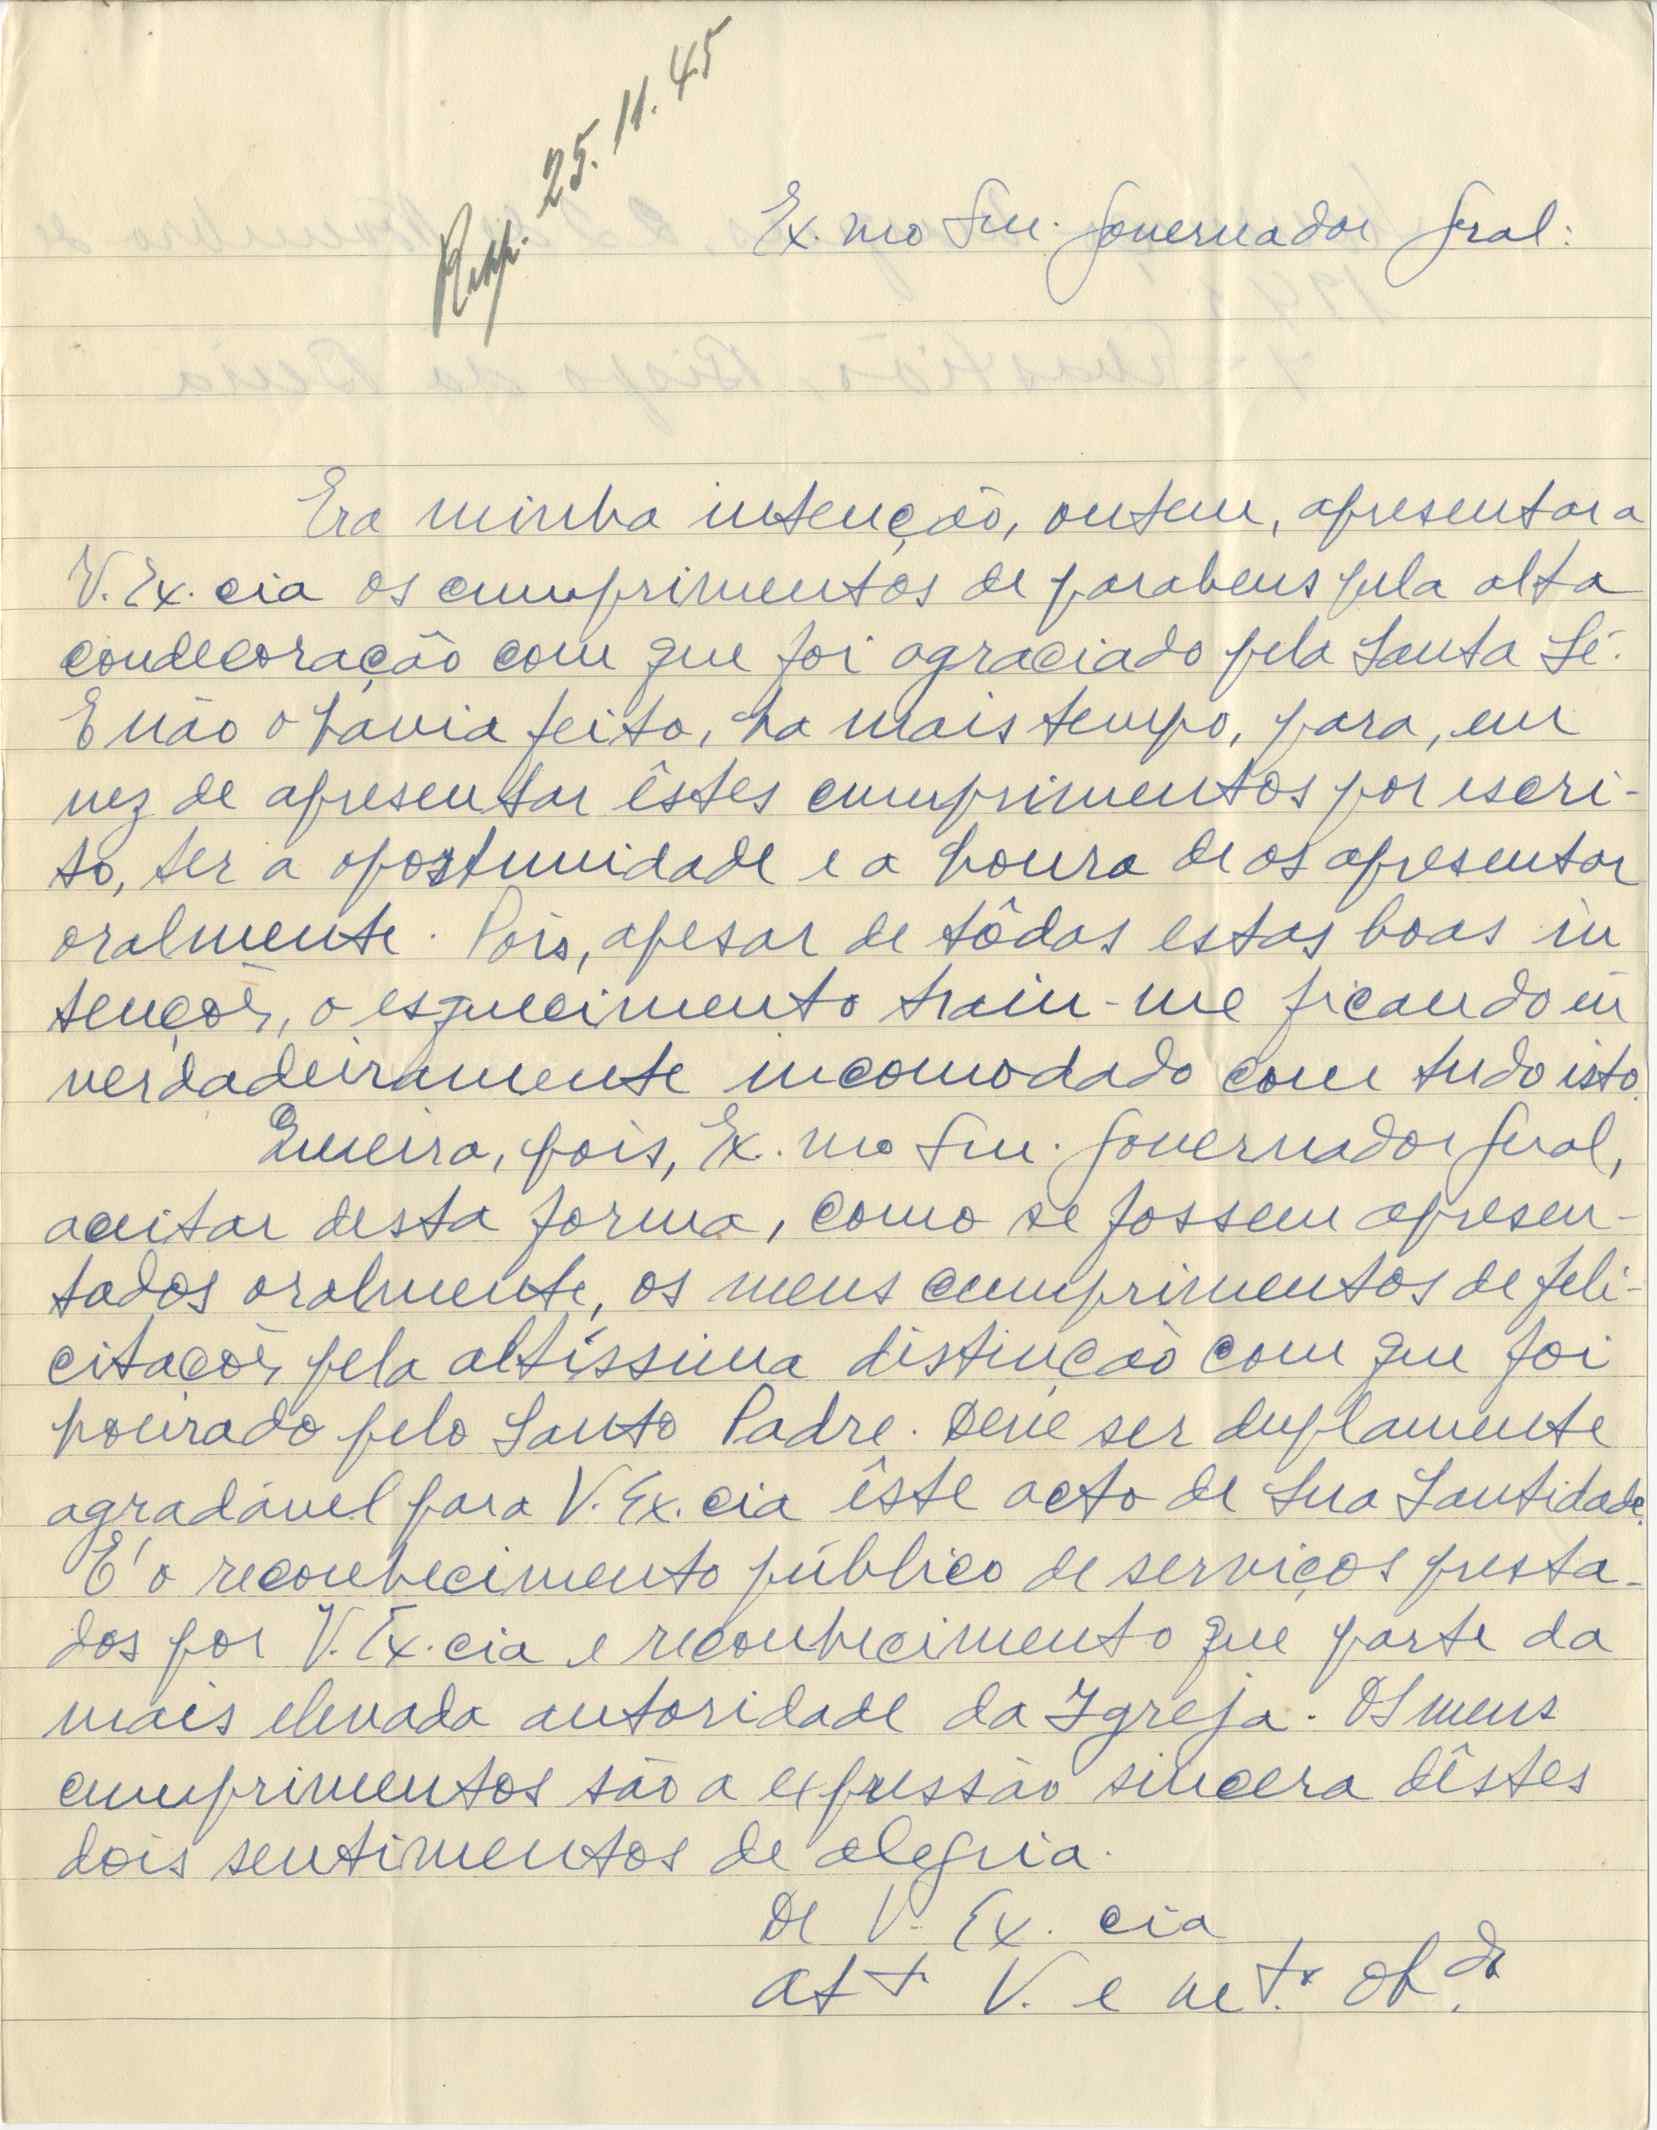 Resp. 25.11.45
Ex.mo Snr. Governador Geral:
Era minha intenção, ontem, apresentar a
V. Ex.cia os cumprimentos de parabens pela alta
condecoração com que foi agraciado pela Santa Sé.
E não o havia feito, ha mais tempo, para, em
vez de apresentar êstes cumprimentos por escri-
to, ter a oportunidade e a honra de os apresentar
oralmente. Pois, apesar de tôdas estas boas in
tenções, o esquecimento traiu-me ficando eu
verdadeiramente incomodado com tudo isto.
Queira, pois, Ex.mo Snr. Governador Geral,
aceitar desta forma, como se fossem apresen-
tados oralmente, os meus cumprimentos de feli-
citações pela altíssima distinção com que foi
honrado pelo Santo Padre. Deve ser duplamente
agradável para V. Ex.cia êste acto de Sua Santidade.
E' o reconhecimento público de serviços presta-
dos por V. Ex.cia e reconhecimento que parte da
mais elevada autoridade da Igreja. Os meus
cumprimentos são a expressão sincera dêstes
dois sentimentos de alegria.
De V. Ex.cia
Att V. e